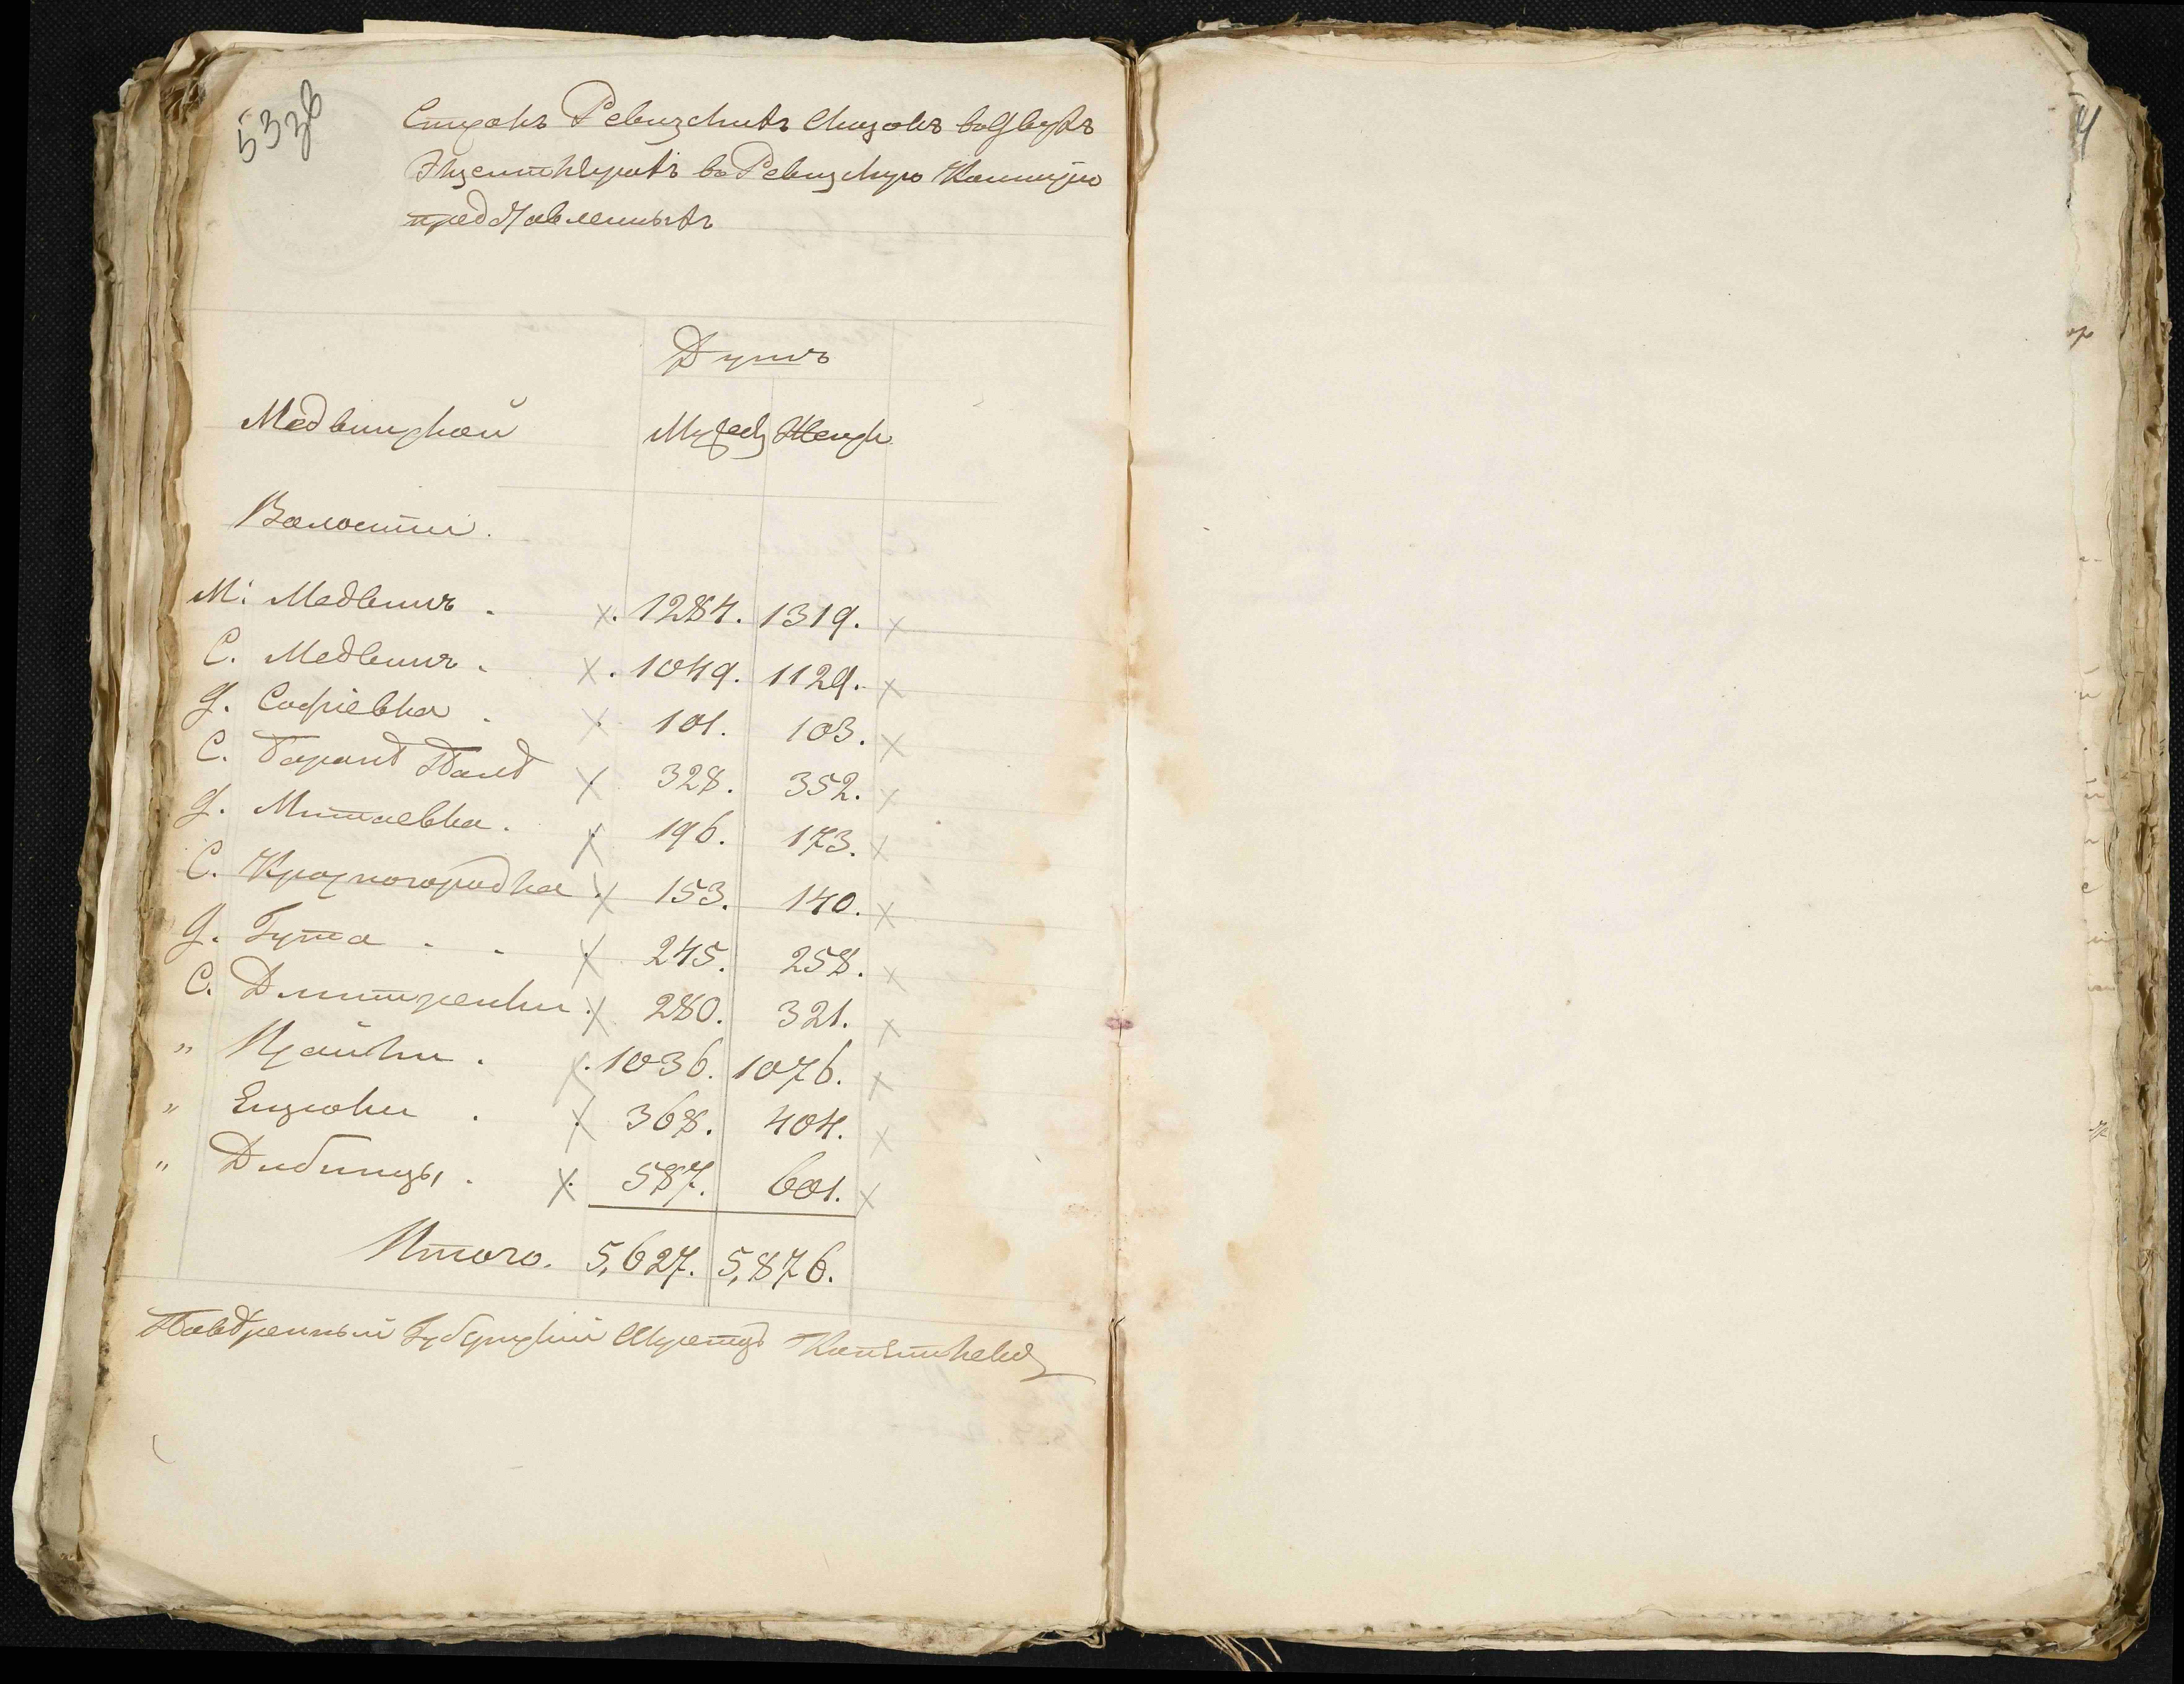 533 зв
Списокъ Ревизскихъ Сказокъ въ двухъ
Экземплярахъ въ Ревизскую Коммисію
представленныхъ
Душъ
Медвинской Мужеск Женск
Волости.
М: Медвинъ. 1284. 1319.
С. Медвинъ. 1049. 1129.
д. Софіевка. 101. 103.
С. Баранѣ Полѣ 328. 352.
д. Митаевка. 196. 173.
С. Красногородка. 153. 140.
д. Гута . . 245. 258.
С. Дмитренки. 280. 321.
" Исайки. 1036. 1076.
" Ензюки. 368. 404.
" Дибинцы. 587. 601.
Итого. 5,627. 5,876.
Повѣренный Губернскій Секретарь
4